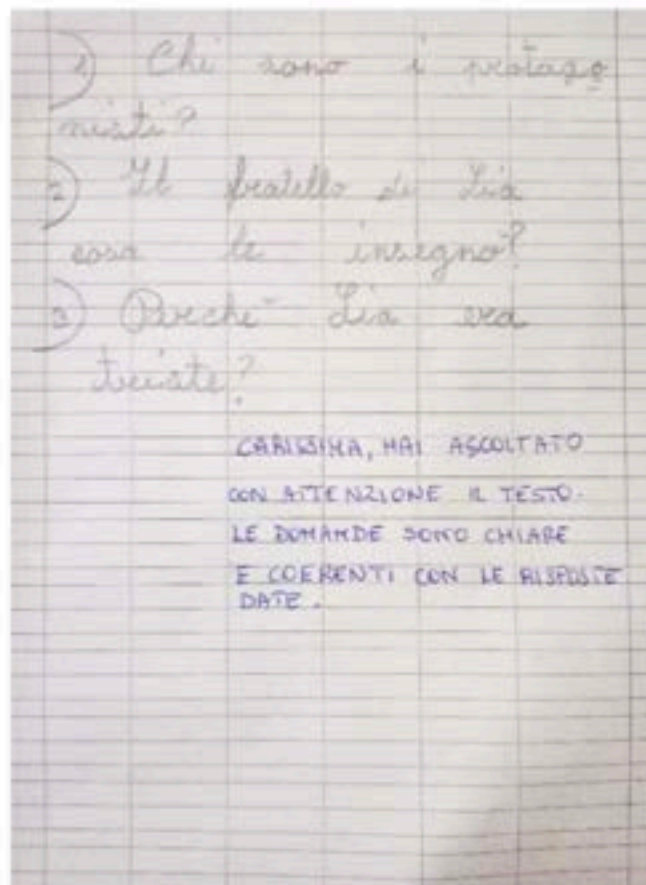 1) Chi sono i protago
nisti?
2) Il fratello di Lia
cosa le insegnò?
3) Perché Lia era
triste?
CARISSIMA, HAI ASCOLTATO
CON ATTENZIONE IL TESTO.
LE DOMANDE SONO CHIARE
E COERENTI CON LE RISPOSTE
DATE.